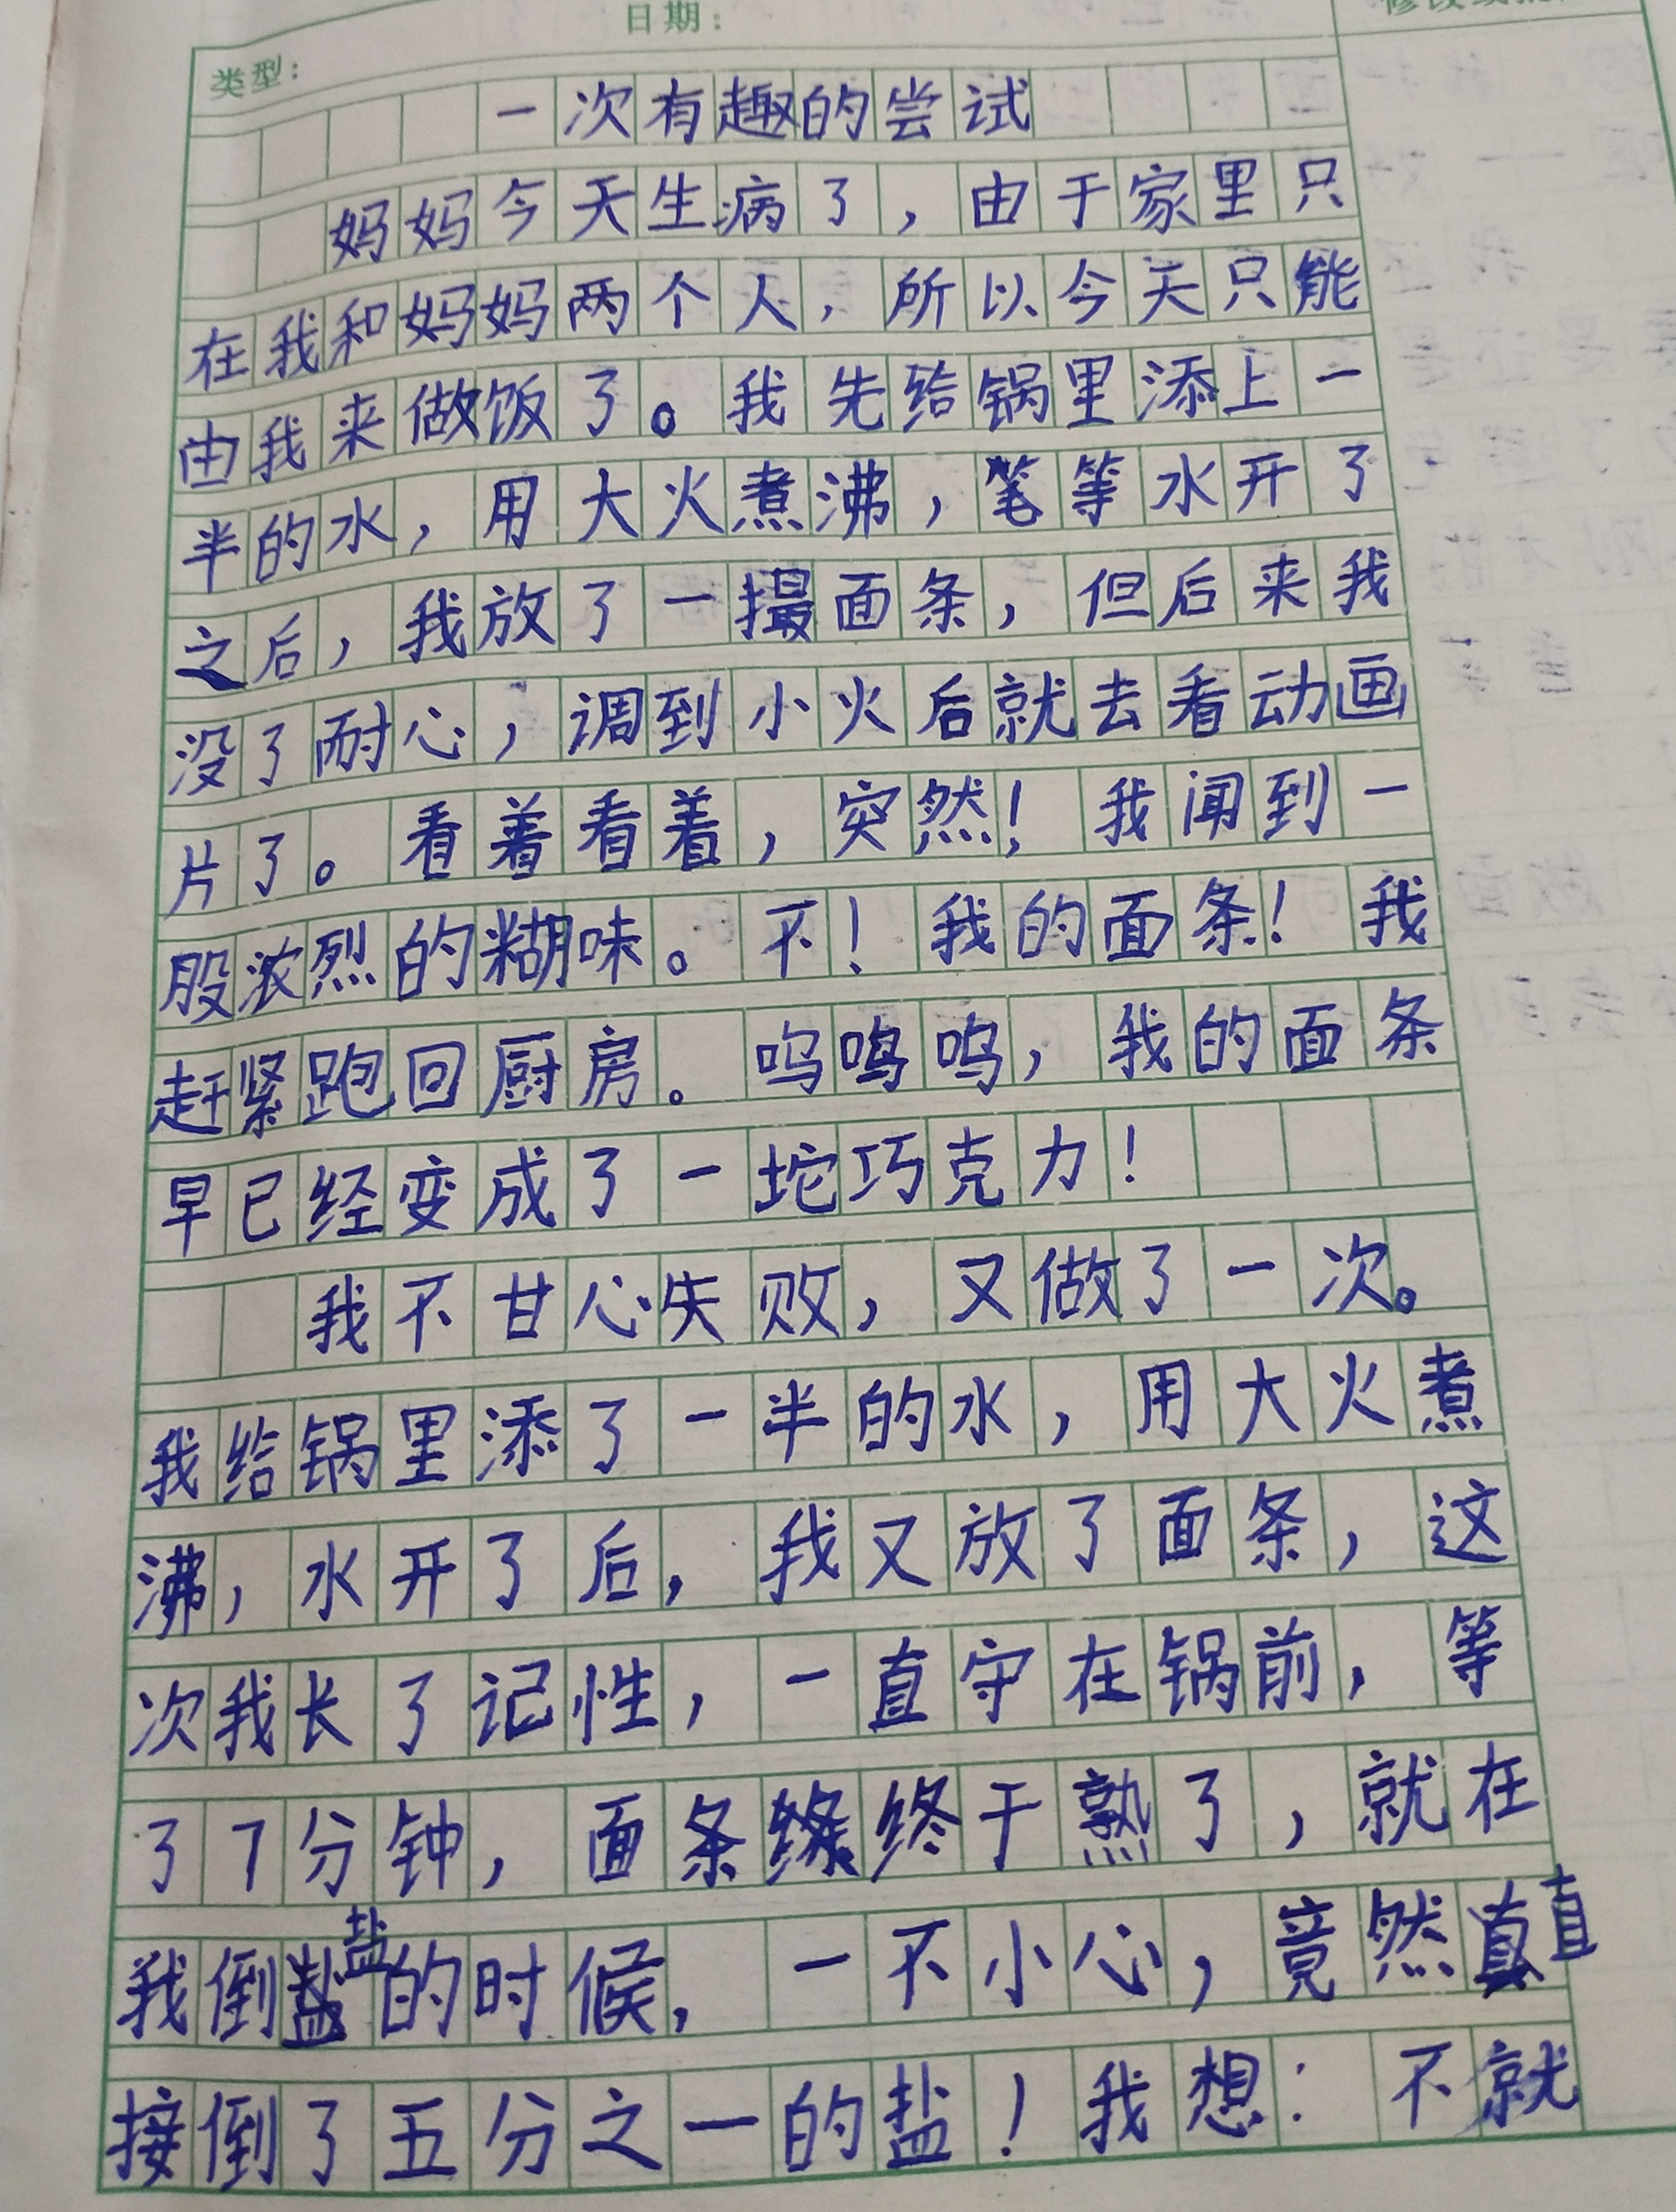 日期:
类型:
一次有趣的尝试
妈妈今天生病了，由于家里只
在我和妈妈两个人，所以今天只能
由我来做饭了。我先给锅里添上一
半的水，用大火煮沸，笔等水开了
之后，我放了一撮面条，但后来我
没了耐心，调到小火后就去看动画
片了。看着看着，突然！我闻到一
股浓烈的糊味。不！我的面条！我
赶紧跑回厨房。呜呜呜，我的面条
早已经变成了一坨巧克力！
我不甘心失败，又做了一次。
我给锅里添了一半的水，用大火煮
沸，水开了后，我又放了面条，这
次我长了记性，一直守在锅前，等
了7分钟，面条终于熟了，就在
我倒盐的时候，一不小心，竟然直
接倒了五分之一的盐！我想：不就